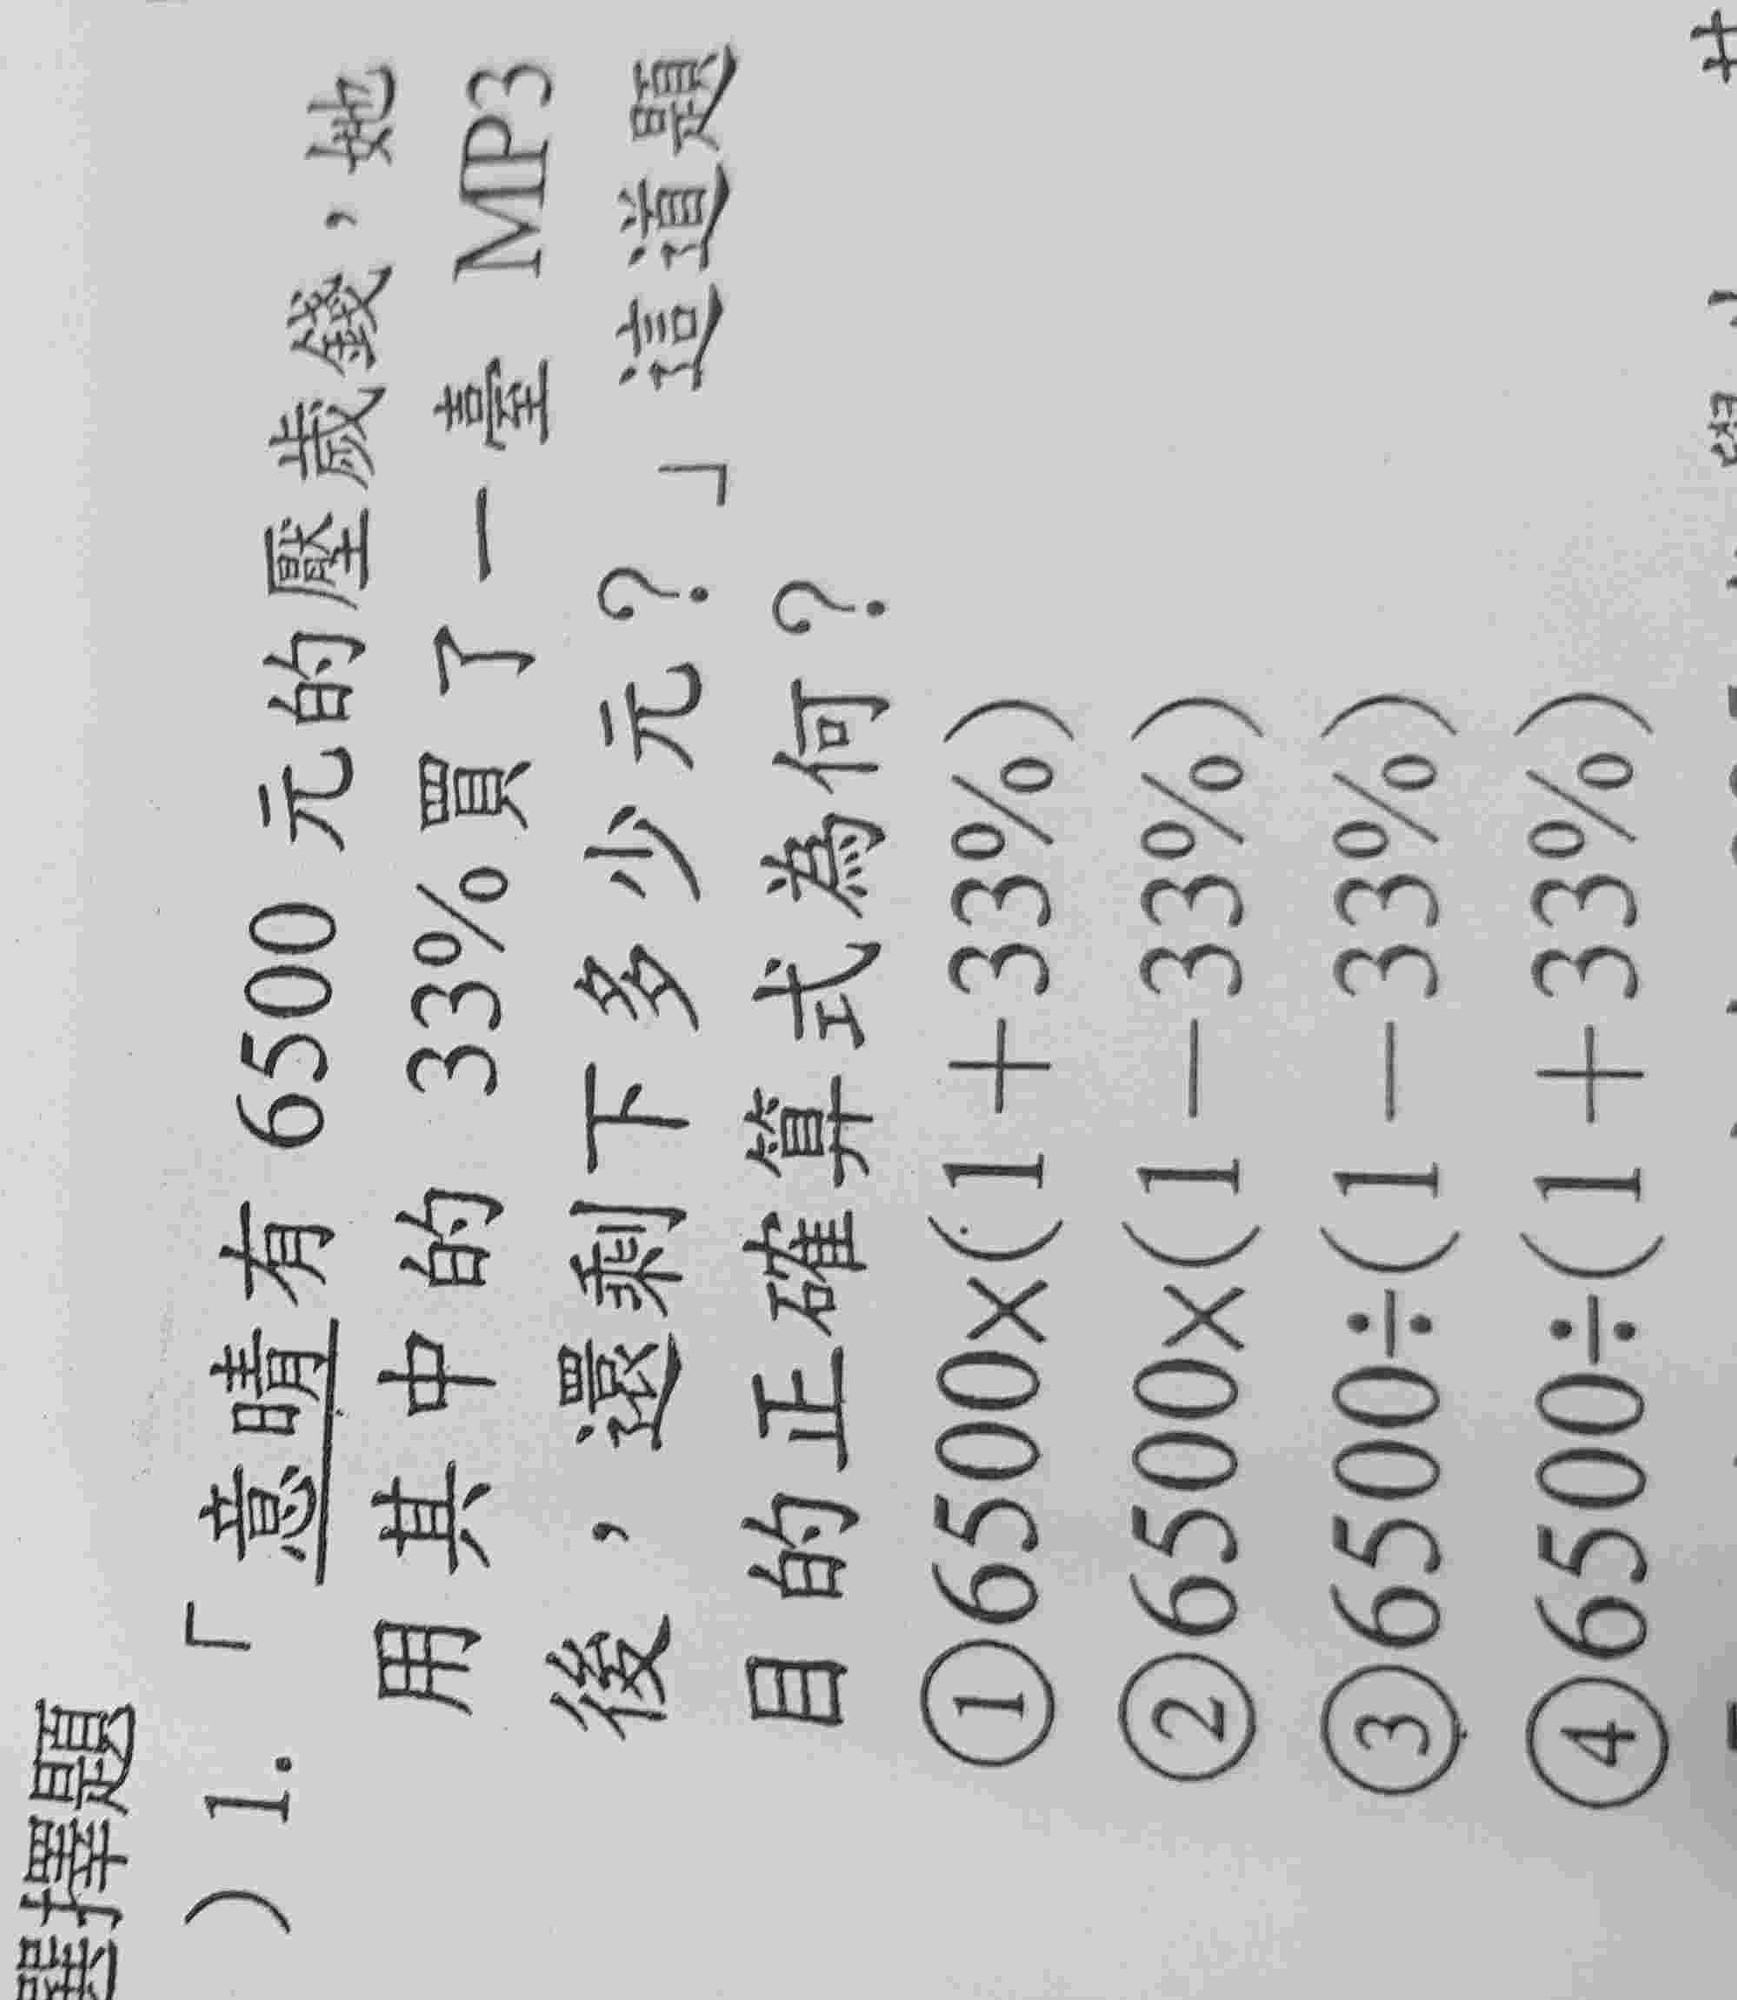 選擇題
）1.「意晴有 6500 元的壓歲錢，她
用其中的 33%買了一臺 MP3
後，還剩下多少元？」這道題
目的正確算式為何？
①6500×(1＋33%)
②6500×(1－33%)
③6500÷(1－33%)
④6500÷(1＋33%)